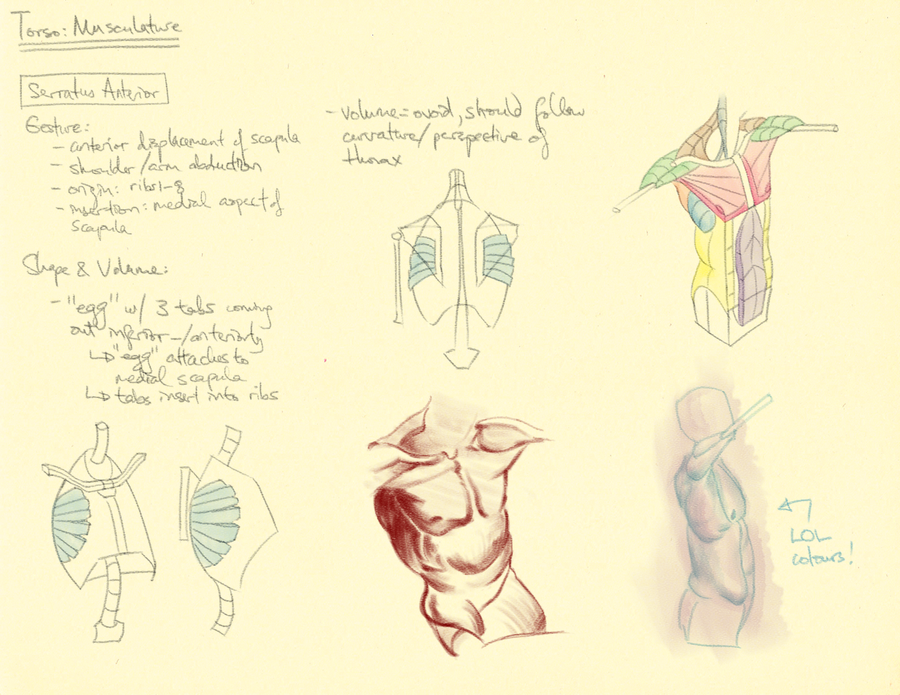 Torso: Musculature
Serratus Anterior
Gesture:
- anterior displacement of scapula
- shoulder/arm abduction
- origin: ribs 1-8
- insertion: medial aspect of
scapula
Shape & Volume:
- "egg" w/ 3 tabs coming
out inferior-/anteriorly
↳ "egg" attaches to
medial scapula
↳ tabs insert into ribs
- volume = ovoid, should follow
curvature/perspective of
thorax
LOL
colours!